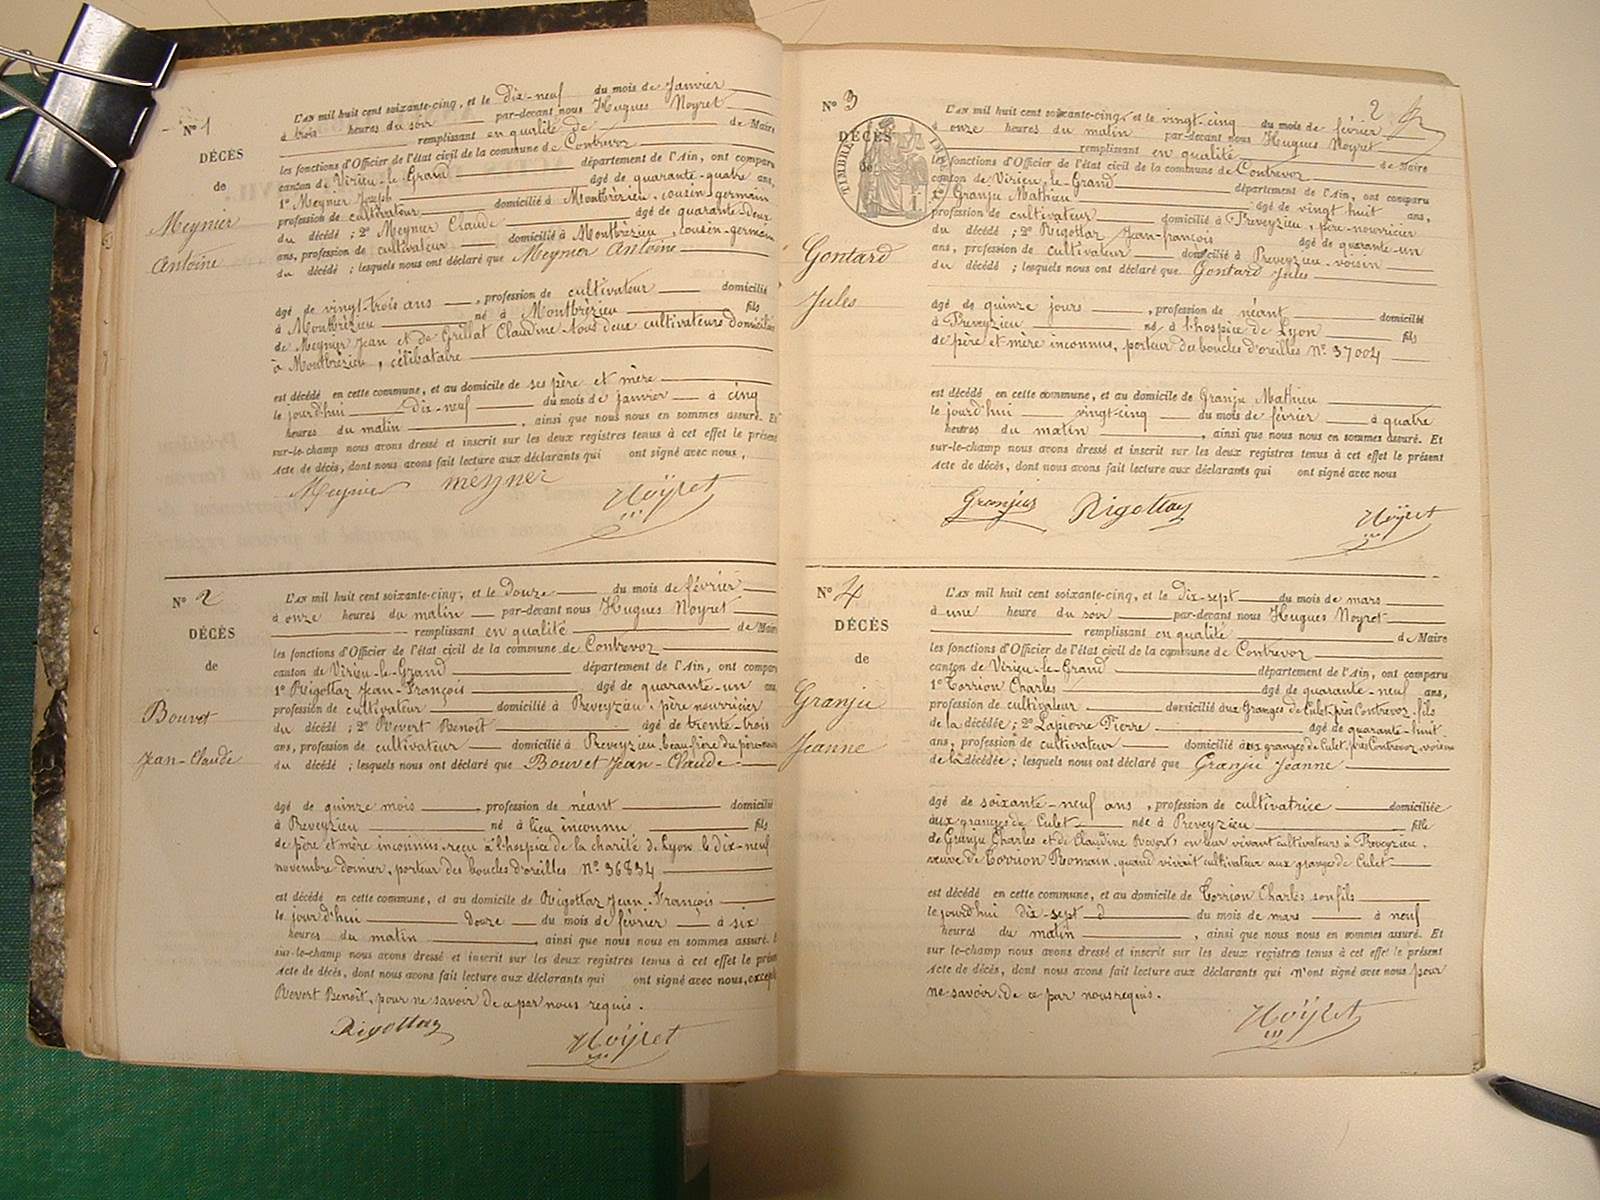 N° 1
DÉCÈS
de
Meynier
Antoine
L'AN mil huit cent soixante-cinq, et le dix-neuf du mois de Janvier
à trois heures du soir par-devant nous Hugues Noyret
remplissant en qualité de de Maire
les fonctions d'Officier de l'état civil de la commune de Contrevoz
canton de Virieu-le-Grand département de l'Ain, ont comparu
1° Meynier Joseph âgé de quarante-quatre ans,
profession de cultivateur domicilié à Montbrézieu, cousin-germain
du décédé ; 2° Meynier Claude âgé de quarante-deux
ans, profession de cultivateur domicilié à Montbrézieu, cousin-germain
du décédé ; lesquels nous ont déclaré que Meynier Antoine
âgé de vingt-trois ans, profession de cultivateur domicilié
à Montbrézieu né à Montbrézieu fils
de Meynier Jean et de Grillat Claudine tous deux cultivateurs domiciliés
à Montbrézieu, célibataire
est décédé en cette commune, et au domicile de ses père et mère
le jourd'hui dix-neuf du mois de janvier à cinq
heures du matin, ainsi que nous nous en sommes assuré. Et
sur-le-champ nous avons dressé et inscrit sur les deux registres tenus à cet effet le présent
Acte de décès, dont nous avons fait lecture aux déclarants qui ont signé avec nous,
Meynier meyner Noÿret
N° 2
DÉCÈS
de
Bouvet
Jean-Claude
L'AN mil huit cent soixante-cinq, et le douze du mois de février
à onze heures du matin par-devant nous Hugues Noyret
remplissant en qualité de Maire
les fonctions d'Officier de l'état civil de la commune de Contrevoz
canton de Virieu-le-Grand département de l'Ain, ont comparu
1° Rigottaz Jean-François âgé de quarante-un ans,
profession de cultivateur domicilié à Preveyzieu, père nourricier
du décédé ; 2° Revert Benoît âgé de trente-trois
ans, profession de cultivateur domicilié à Preveyzieu beau-frère du père-nourr
du décédé ; lesquels nous ont déclaré que Bouvet Jean-Claude
âgé de quinze mois, profession de néant domicilié
à Preveyzieu né à lieu inconnu fils
de père et mère inconnus reçu à l'hospice de la charité de Lyon le dix-neuf
novembre dernier, porteur des boucles d'oreilles N° 36834
est décédé en cette commune, et au domicile de Rigottaz Jean-François
le jourd'hui douze du mois de février à six
heures du matin, ainsi que nous nous en sommes assuré. E
sur-le-champ nous avons dressé et inscrit sur les deux registres tenus à cet effet le présent
Acte de décès, dont nous avons fait lecture aux déclarants qui ont signé avec nous, excepté
Revert Benoît, pour ne savoir de ce par nous requis.
Rigottaz Noÿret
2
N° 3
DÉCÈS
de
TIMBRE IMPÉRIAL
Gontard
Jules
L'AN mil huit cent soixante-cinq, et le vingt-cinq du mois de février
à onze heures du matin par-devant nous Hugues Noyret
remplissant en qualité de Maire
les fonctions d'Officier de l'état civil de la commune de Contrevoz
canton de Virieu-le-Grand département de l'Ain, ont comparu
1° Granju Mathieu âgé de vingt huit ans,
profession de cultivateur domicilié à Preveyzieu, père-nourricier
du décédé ; 2° Rigottaz Jean-françois âgé de quarante-un
ans, profession de cultivateur domicilié à Preveyzieu voisin
du décédé ; lesquels nous ont déclaré que Gontard Jules
âgé de quinze jours, profession de néant domicilié
à Preveyzieu né à l'hospice de Lyon fils
de père et mère inconnus, porteur des boucles d'oreilles N° 37004
est décédé en cette commune, et au domicile de Granju Mathieu
le jourd'hui vingt-cinq du mois de février à quatre
heures du matin, ainsi que nous nous en sommes assuré. Et
sur-le-champ nous avons dressé et inscrit sur les deux registres tenus à cet effet le présent
Acte de décès, dont nous avons fait lecture aux déclarants qui ont signé avec nous
Granjus Rigottaz Noÿret
N° 4
DÉCÈS
de
Granju
Jeanne
L'AN mil huit cent soixante-cinq, et le dix-sept du mois de mars
à une heure du soir par-devant nous Hugues Noyret
remplissant en qualité de Maire
les fonctions d'Officier de l'état civil de la commune de Contrevoz
canton de Virieu-le-Grand département de l'Ain, ont comparu
1° Torrion Charles âgé de quarante-neuf ans,
profession de cultivateur domicilié aux Granges de Culet près Contrevoz, fils
de la décédée ; 2° Lapierre Pierre âgé de quarante-huit
ans, profession de cultivateur domicilié aux granges de Culet, près Contrevoz, voisin
de la décédée ; lesquels nous ont déclaré que Granju Jeanne
âgé de soixante-neuf ans, profession de cultivatrice domiciliée
aux granges de Culet née à Preveyzieu fille
de Granju Charles et de Claudine Revert en leur vivant cultivateurs à Preveyzieu,
veuve de Torrion Romain, quand vivait cultivateur aux granges de Culet
est décédé en cette commune, et au domicile de Torrion Charles son fils
le jourd'hui dix-sept du mois de mars à neuf
heures du matin, ainsi que nous nous en sommes assuré. Et
sur le-champ nous avons dressé et inscrit sur les deux registres tenus à cet effet le présent
Acte de décès, dont nous avons fait lecture aux déclarants qui n'ont signé avec nous pour
ne savoir de ce par nous requis.
Noÿret